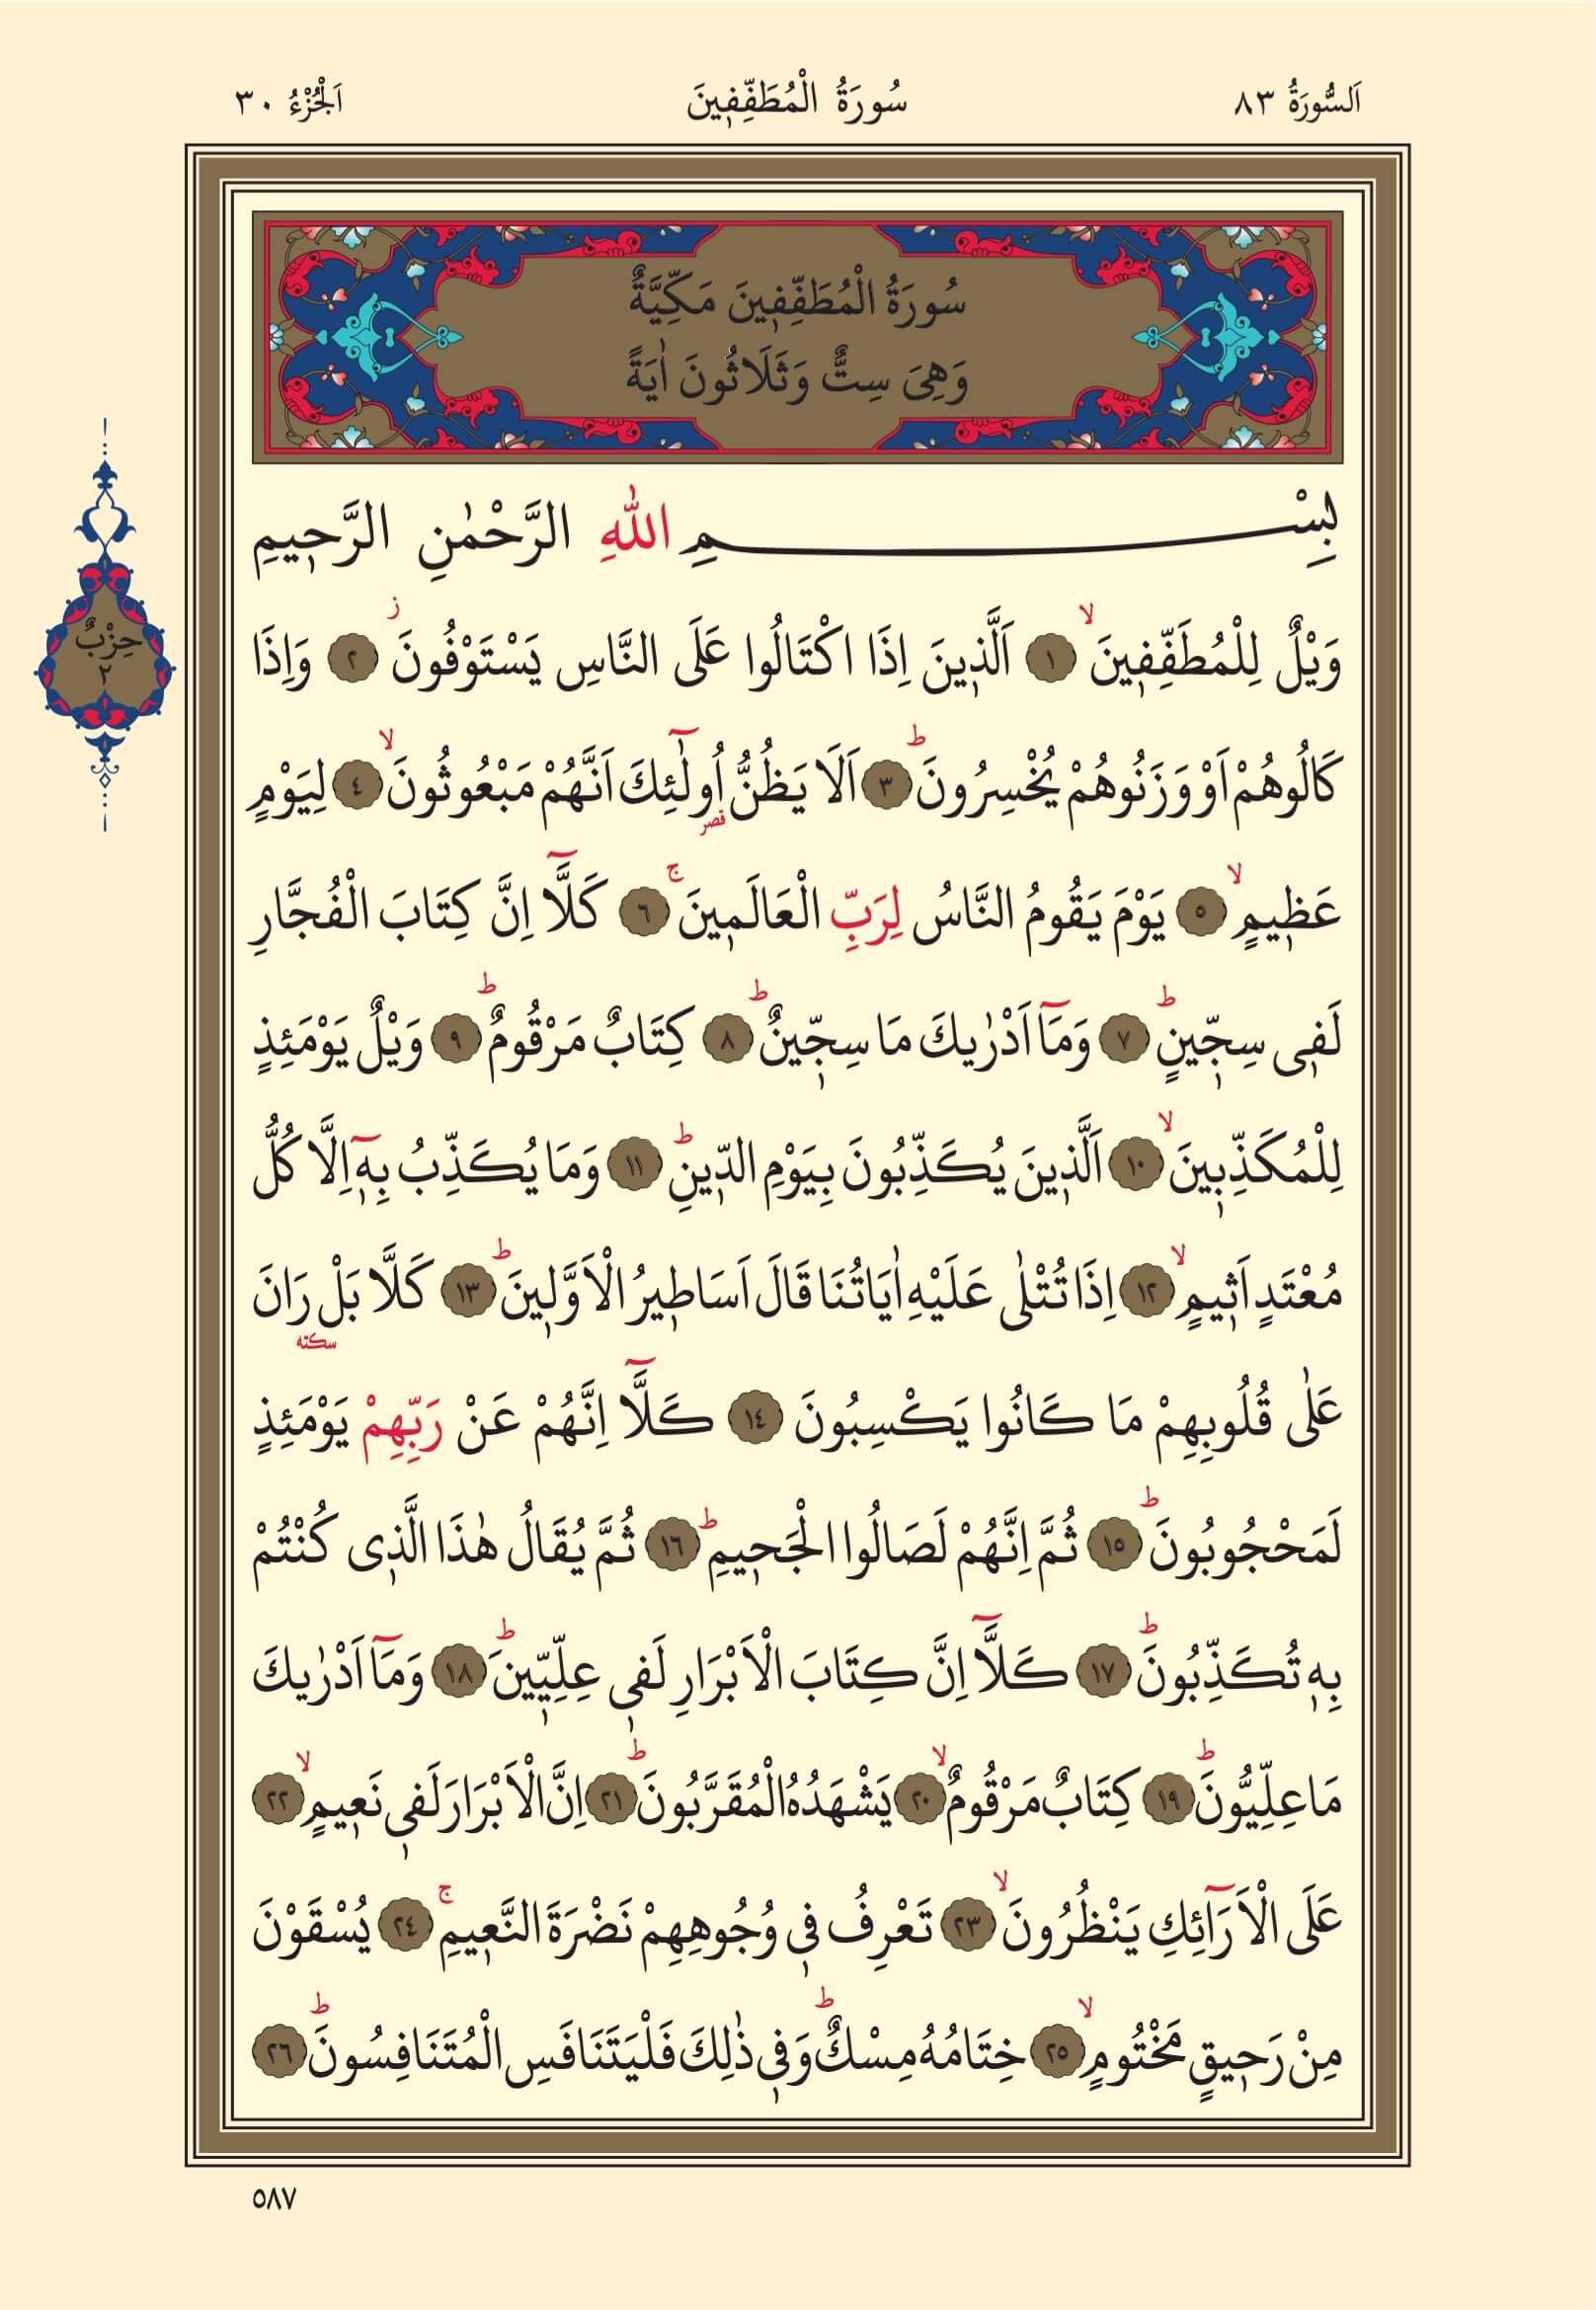 اَلسُّورَةُ ٨٣
سُورَةُ الْمُطَفِّف۪ينَ
اَلْجُزْءُ ٣٠
سُورَةُ الْمُطَفِّف۪ينَ مَكِّيَّةٌ
وَهِىَ سِتٌّ وَثَلَاثُونَ اٰيَةً
حِزْبٌ
٢
بِسْمِ اللّٰهِ الرَّحْمٰنِ الرَّح۪يمِ
وَيْلٌ لِلْمُطَفِّف۪ينَۙ ١ اَلَّذ۪ينَ اِذَا اكْتَالُوا عَلَى النَّاسِ يَسْتَوْفُونَۘ ز ٢ وَاِذَا
كَالُوهُمْ اَوْ وَزَنُوهُمْ يُخْسِرُونَۜ ط ٣ اَلَا يَظُنُّ اُو۬لٰٓئِكَ قصر اَنَّهُمْ مَبْعُوثُونَۙ ٤ لِيَوْمٍ
عَظ۪يمٍۙ ٥ يَوْمَ يَقُومُ النَّاسُ لِرَبِّ الْعَالَم۪ينَۚ ٦ كَلَّٓا اِنَّ كِتَابَ الْفُجَّارِ
لَف۪ى سِجّ۪ينٍ ط ٧ وَمَٓا اَدْرٰيكَ مَا سِجّ۪ينٌ ط ٨ كِتَابٌ مَرْقُومٌ ط ٩ وَيْلٌ يَوْمَئِذٍ
لِلْمُكَذِّب۪ينَۙ ١٠ اَلَّذ۪ينَ يُكَذِّبُونَ بِيَوْمِ الدّ۪ينِ ط ١١ وَمَا يُكَذِّبُ بِه۪ٓ اِلَّا كُلُّ
مُعْتَدٍ اَث۪يمٍۙ ١٢ اِذَا تُتْلٰى عَلَيْهِ اٰيَاتُنَا قَالَ اَسَاط۪يرُ الْاَوَّل۪ينَ ط ١٣ كَلَّا بَلْ سكته رَانَ
عَلٰى قُلُوبِهِمْ مَا كَانُوا يَكْسِبُونَ ١٤ كَلَّٓا اِنَّهُمْ عَنْ رَبِّهِمْ يَوْمَئِذٍ
لَمَحْجُوبُونَ ط ١٥ ثُمَّ اِنَّهُمْ لَصَالُوا الْجَح۪يمِ ط ١٦ ثُمَّ يُقَالُ هٰذَا الَّذ۪ى كُنْتُمْ
بِه۪ تُكَذِّبُونَ ط ١٧ كَلَّٓا اِنَّ كِتَابَ الْاَبْرَارِ لَف۪ى عِلِّيّ۪ينَ ط ١٨ وَمَٓا اَدْرٰيكَ
مَا عِلِّيُّونَ ط ١٩ كِتَابٌ مَرْقُومٌۙ ٢٠ يَشْهَدُهُ الْمُقَرَّبُونَ ط ٢١ اِنَّ الْاَبْرَارَ لَف۪ى نَع۪يمٍۙ ٢٢
عَلَى الْاَرَٓائِكِ يَنْظُرُونَۙ ٢٣ تَعْرِفُ ف۪ى وُجُوهِهِمْ نَضْرَةَ النَّع۪يمِۚ ٢٤ يُسْقَوْنَ
مِنْ رَح۪يقٍ مَخْتُومٍۙ ٢٥ خِتَامُهُ مِسْكٌ ط وَف۪ى ذٰلِكَ فَلْيَتَنَافَسِ الْمُتَنَافِسُونَ ط ٢٦
٥٨٧